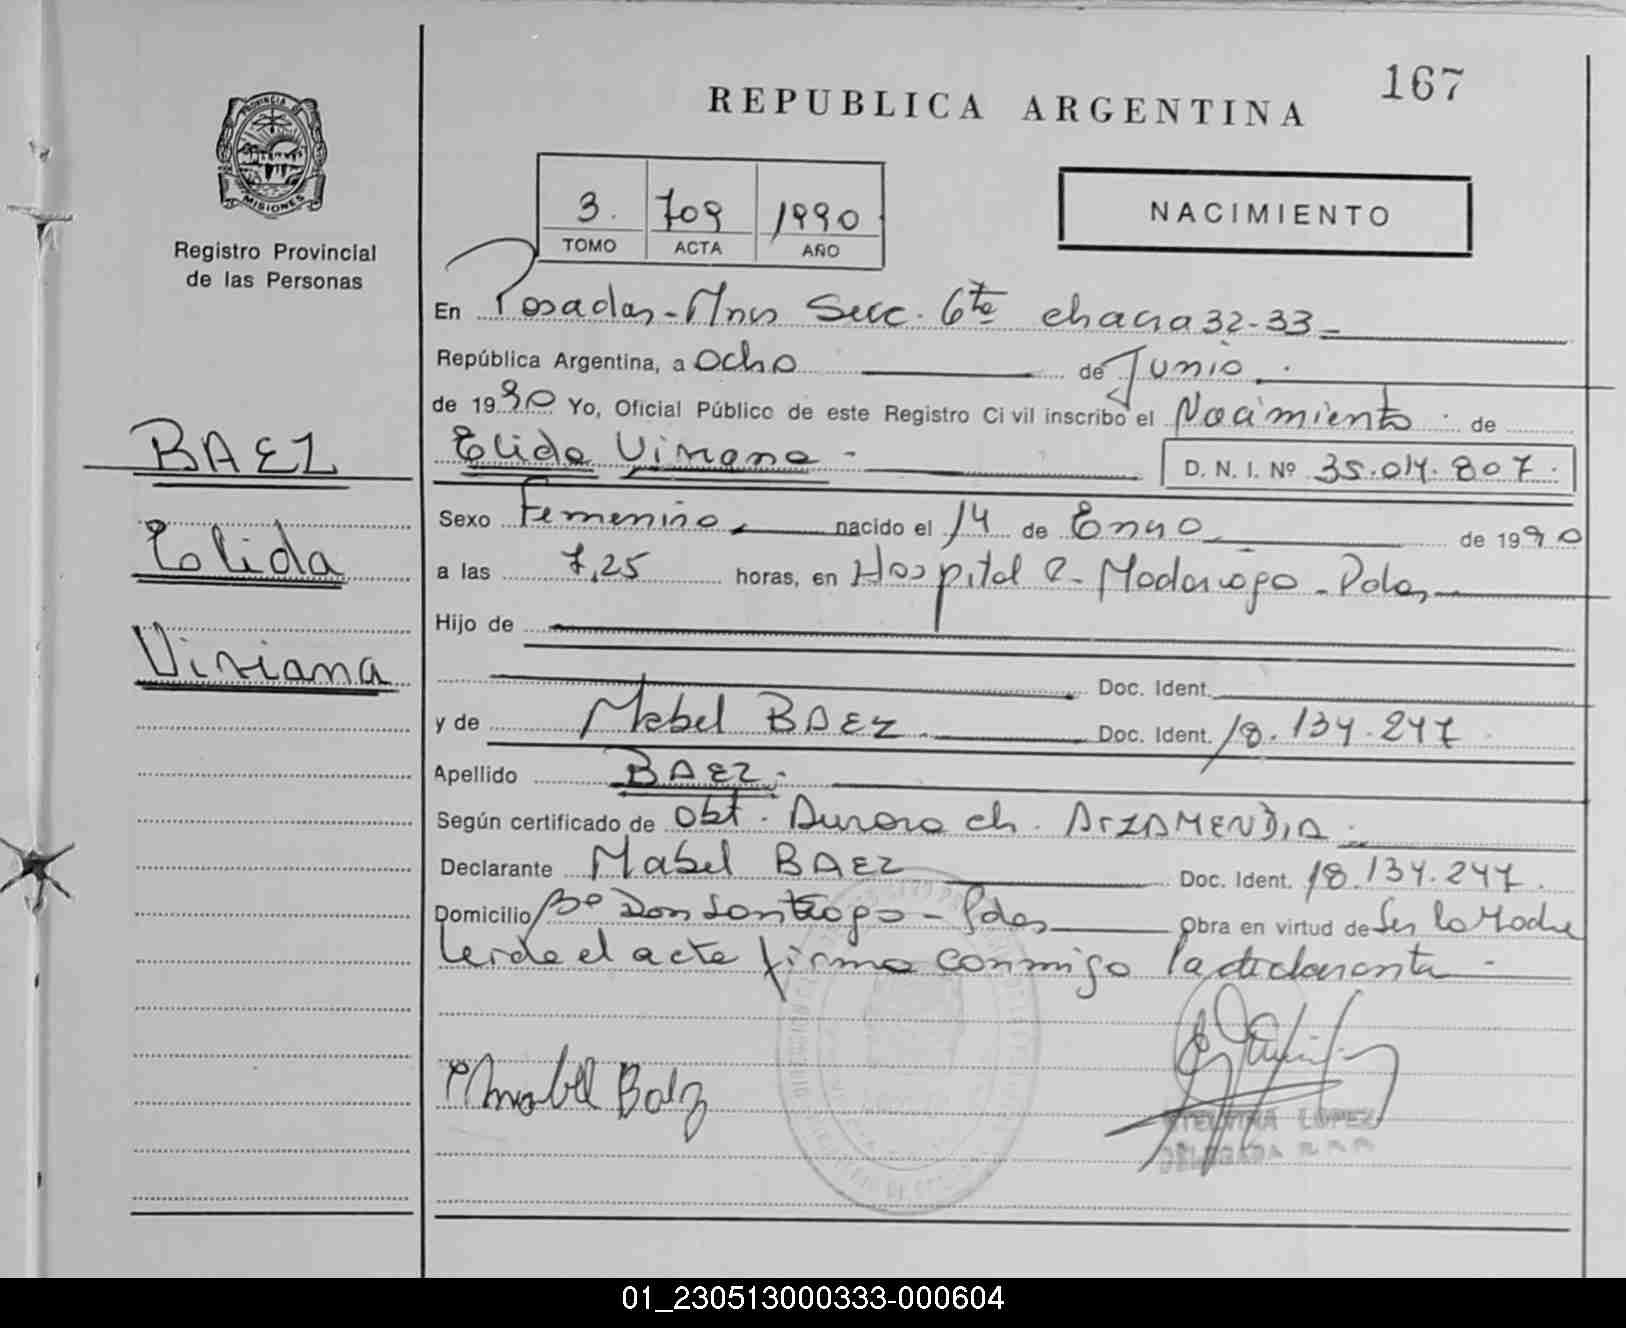 167
REPUBLICA ARGENTINA
PROVINCIA DE
MISIONES
Registro Provincial
de las Personas
3. 709 1990
TOMO ACTA AÑO
NACIMIENTO
En Posadas - Mnes Secc. 6ta chacra 32-33
República Argentina, a Ocho de Junio
de 1990 Yo, Oficial Público de este Registro Civil inscribo el Nacimiento de
Elida Viviana D. N. I. Nº 35.014.807
BAEZ
Elida
Viviana
Sexo Femenino nacido el 14 de Enero de 1990
a las 7,25 horas, en Hospital R. Madariaga - Pdas
Hijo de
Doc. Ident.
y de Mabel BAEZ Doc. Ident. 18.134.247
Apellido BAEZ
Según certificado de Obt. Aurora ch. ARZAMENDIA
Declarante Mabel BAEZ Doc. Ident. 18.134.247
Domicilio Bº Don Santiago - Pdas Obra en virtud de Ser la Madre
Leida el acta firma conmigo la declarante
Mabel Baez
ETELVINA LOPEZ
DELEGADA
01_230513000333-000604